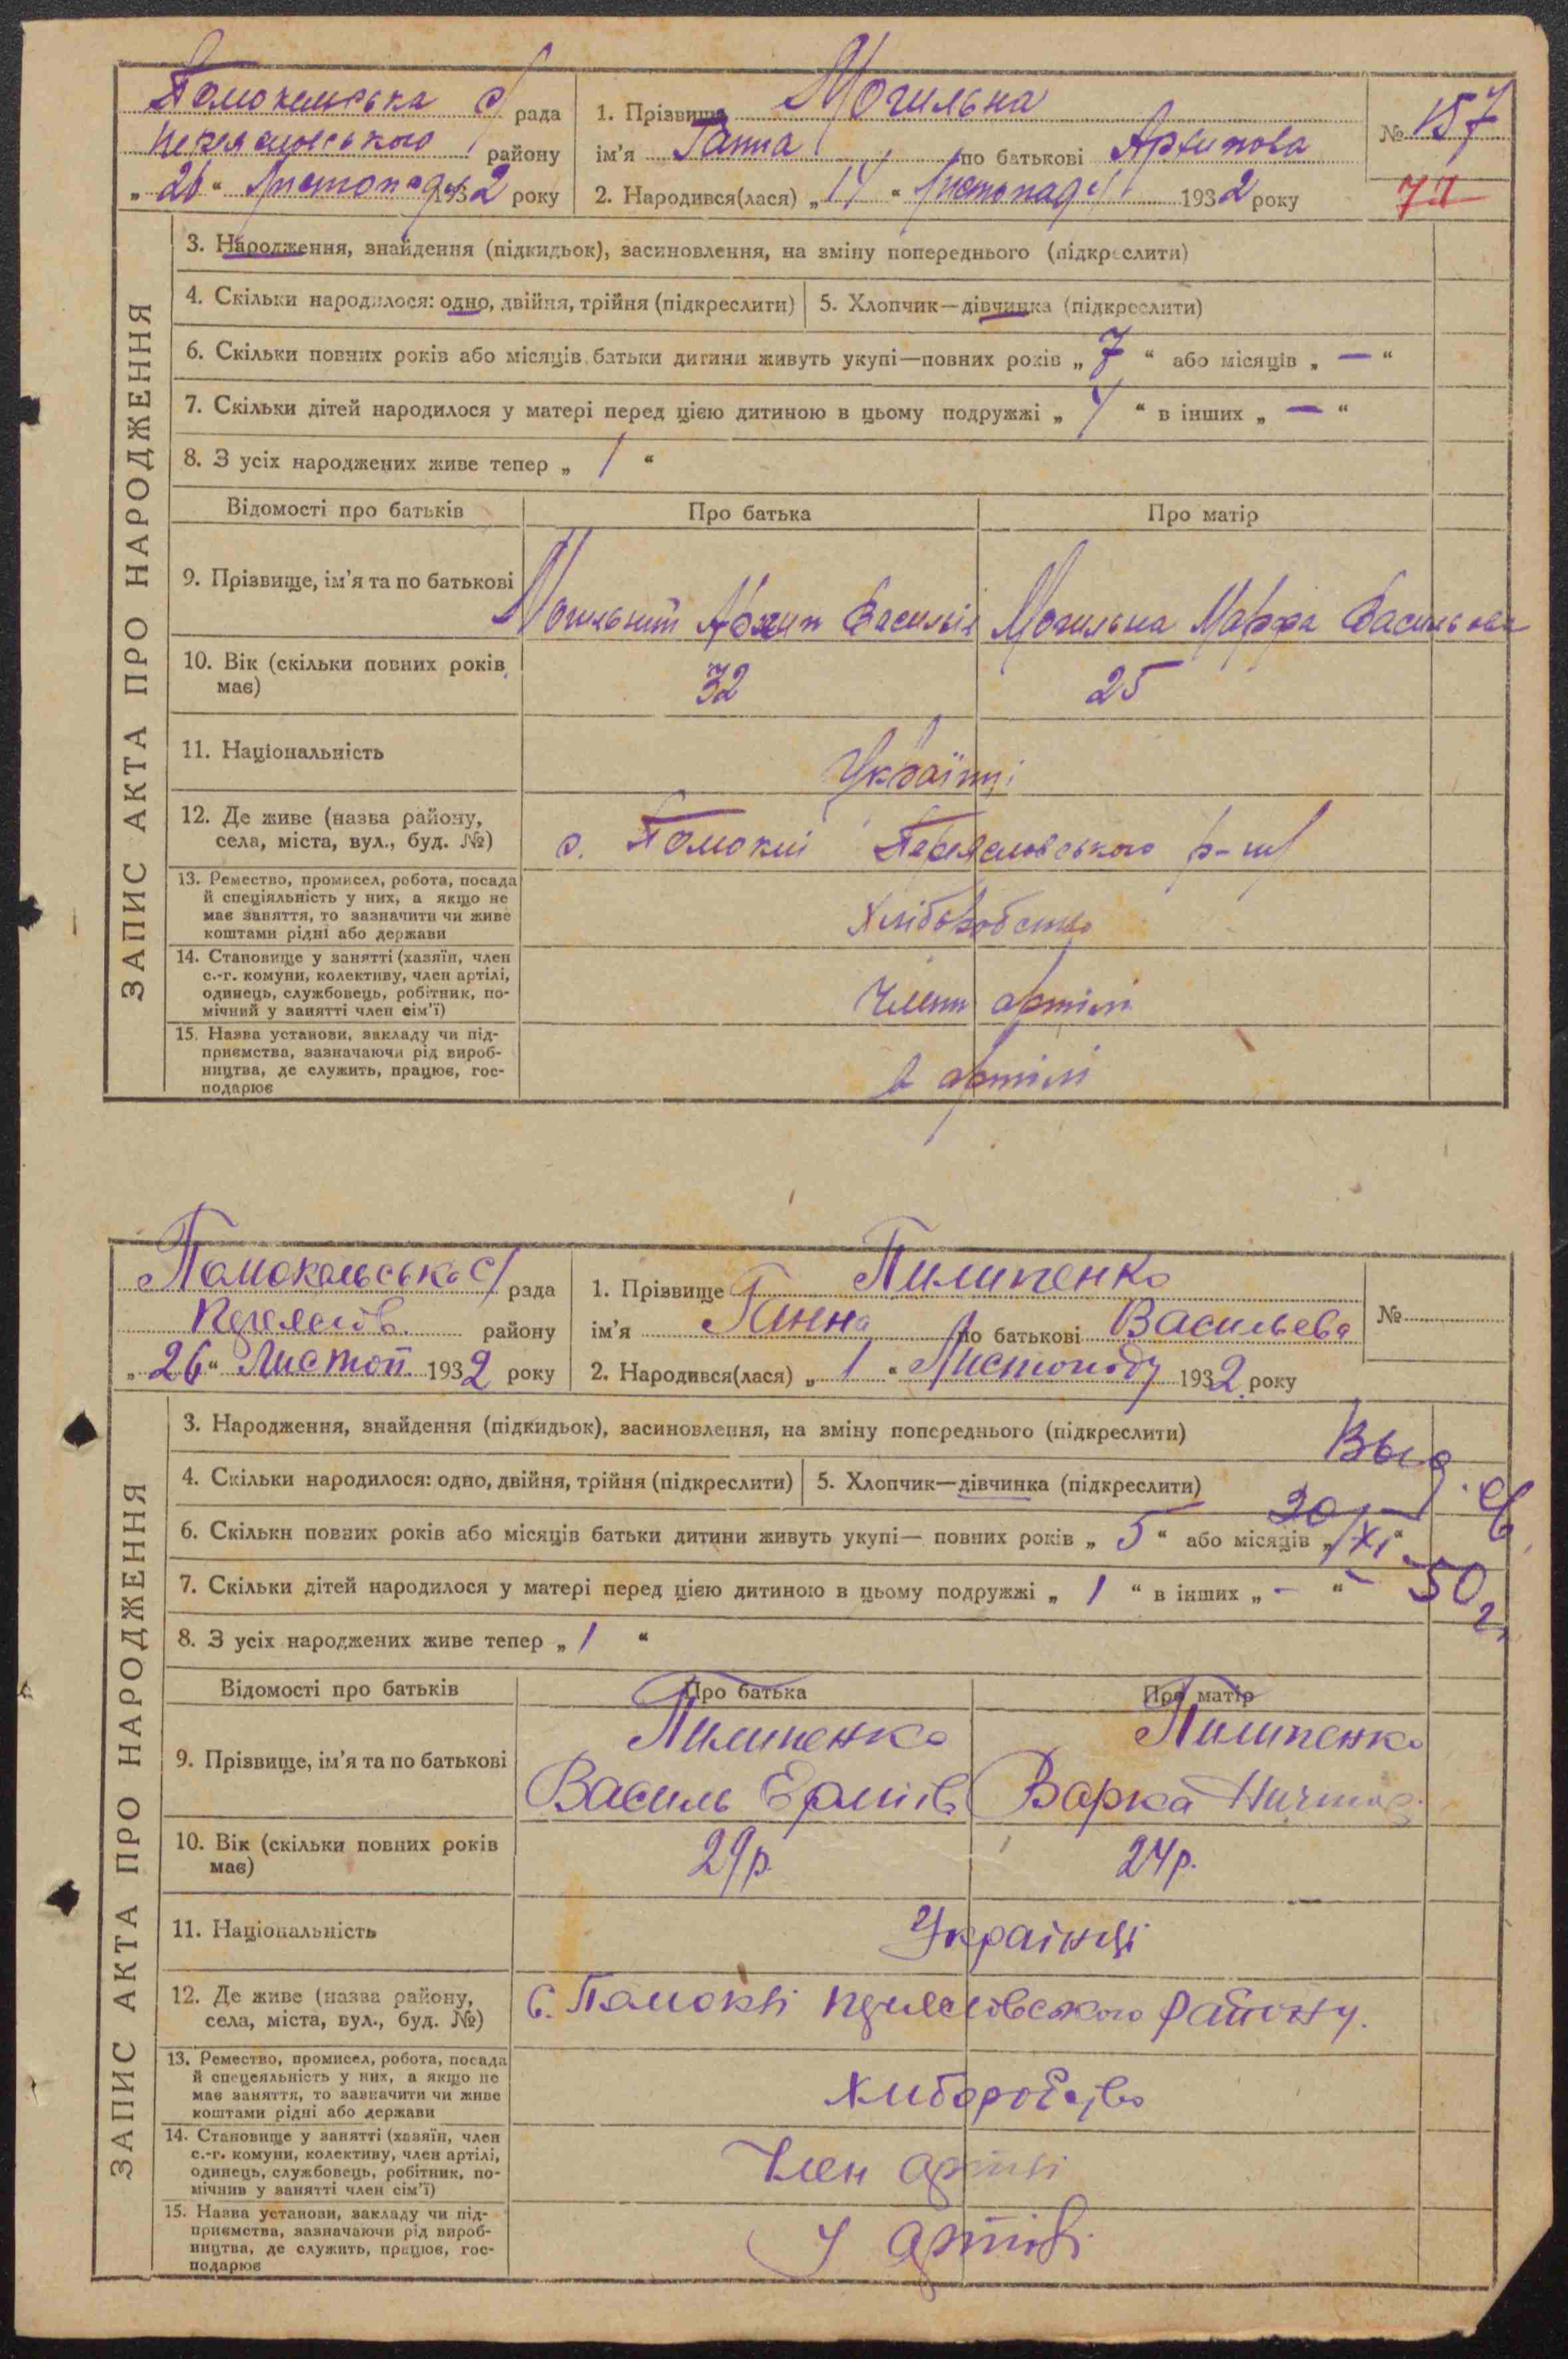 Помокельська с/рада
Переяславського району
„26“ Листопаду 1932 року
1. Прізвище Могильна
ім'я Ганна по батькові Архипова
2. Народився(лася) „14“ Листопаду 1932 року
№ 157
77
ЗАПИС АКТА ПРО НАРОДЖЕННЯ
3. Народження, знайдення (підкидьок), засиновлення, на зміну попереднього (підкреслити)
4. Скільки народилося: одно, двійня, трійня (підкреслити)
5. Хлопчик—дівчинка (підкреслити)
6. Скільки повних років або місяців батьки дитини живуть укупі—повних років „7“ або місяців „—“
7. Скільки дітей народилося у матері перед цією дитиною в цьому подружжі „ “ в інших „—“
8. З усіх народжених живе тепер „1“
Відомості про батьків
Про батька
Про матір
9. Прізвище, ім'я та по батькові
Могильний Архип Васильів
Могильна Марфа Васильова
10. Вік (скільки повних років
має)
32
25
11. Національність
Українці
12. Де живе (назва району,
села, міста, вул., буд. №)
с. Помоклі Переяславського р-ну
13. Ремество, промисел, робота, посада
й спеціяльність у них, а якщо не
має заняття, то зазначити чи живе
коштами рідні або держави
Хліборобство
14. Становище у занятті (хазяїн, член
с.-г. комуни, колективу, член артілі,
одинець, службовець, робітник, по-
мічний у занятті член сім'ї)
Член артілі
15. Назва установи, закладу чи під-
приємства, зазначаючи рід вироб-
ництва, де служить, працює, гос-
подарює
в артілі
Помокельська с/рада
Переяслів. району
„26“ Листоп 1932 року
1. Прізвище Пилипенко
ім'я Ганна по батькові Васильева
2. Народився(лася) „1“ Листопаду 1932 року
№
ЗАПИС АКТА ПРО НАРОДЖЕННЯ
3. Народження, знайдення (підкидьок), засиновлення, на зміну попереднього (підкреслити)
Выд. св
4. Скільки народилося: одно, двійня, трійня (підкреслити)
5. Хлопчик—дівчинка (підкреслити)
20/XI - 50 г.
6. Скільки повних років або місяців батьки дитини живуть укупі— повних років „5“ або місяців „ “
7. Скільки дітей народилося у матері перед цією дитиною в цьому подружжі „1“ в інших „-“
8. З усіх народжених живе тепер „1“
Відомості про батьків
Про батька
Про матір
9. Прізвище, ім'я та по батькові
Пилипенко
Василь
Пилипенко
Варка
10. Вік (скільки повних років
має)
29р.
24р.
11. Національність
Українці
12. Де живе (назва району,
села, міста, вул., буд. №)
с. Помоклі Переяслівського району.
13. Ремество, промисел, робота, посада
й спецеяльність у них, а якщо не
має заняття, то зазначити чи живе
коштами рідні або держави
хліборобство
14. Становище у занятті (хазяїн, член
с.-г. комуни, колективу, член артілі,
одинець, службовець, робітник, по-
мічнив у занятті член сім'ї)
Член артілі
15. Назва установи, закладу чи під-
приємства, зазначаючи рід вироб-
ництва, де служить, працює, гос-
подарює
У артілі